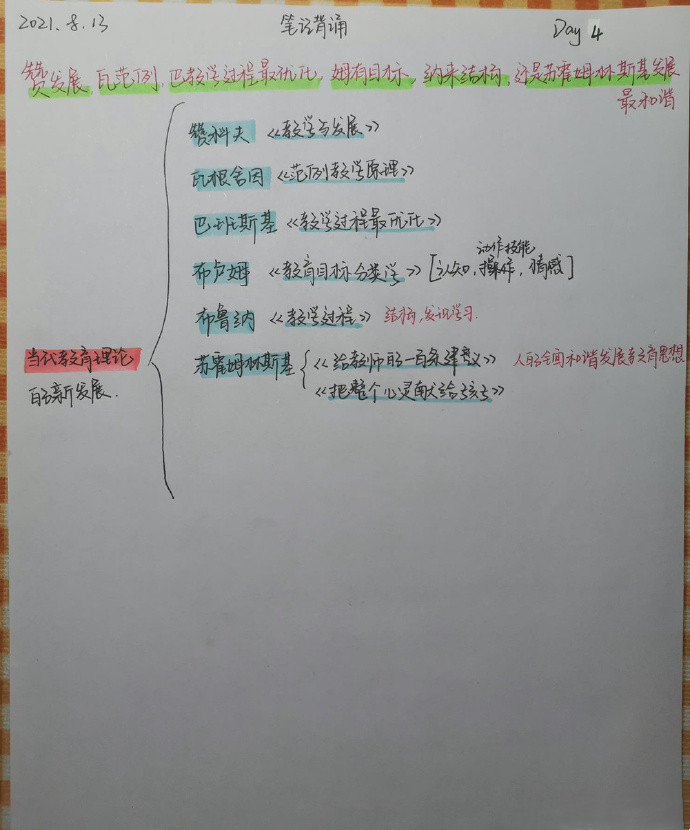 2021.8.13 笔记背诵 Day 4
赞发展,瓦范例,巴教学过程最优化,姆有目标,纳来结构,还是苏霍姆林斯基发展
最和谐
赞科夫《教学与发展》
瓦根舍因《范例教学原理》
巴班斯基《教学过程最优化》
动作技能
布卢姆《教育目标分类学》[认知,操作,情感]
布鲁纳《教学过程》结构,发现学习.
当代教育理论
的新发展.
苏霍姆林斯基{《给教师的一百条建议》人的全面和谐发展教育思想
《把整个心灵献给孩子》